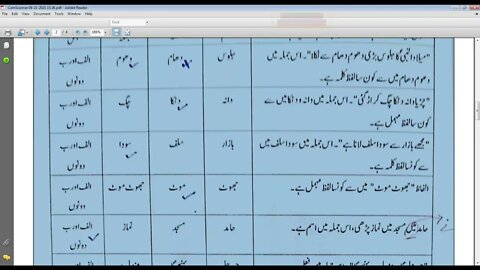 CamScanner 09-22-2021 15.26.pdf - Adobe Reader
File Edit View Window Help
2 / 4
100%
Find
"میلاد النبیؐ کا جلوس بڑی دھوم دھام سے نکلا"۔ اس جملہ میں دھوم دھام میں سے کون سا لفظ کلمہ ہے۔
جلوس
دھام
دھوم
الف اور ب دونوں
"چڑیا دانہ دنکا چگ کر اڑ گئی"۔ اس جملہ میں دانہ دنکا میں سے کون سا لفظ مہمل ہے۔
دانہ
دنکا
چگ
الف اور ب دونوں
"مجھے بازار سے سودا سلف لانا ہے"۔ اس جملہ میں سودا سلف میں سے کونسا لفظ مہمل ہے۔
بازار
سلف
سودا
الف اور ب دونوں
الفاظ "جھوٹ موٹ" میں سے کونسا لفظ مہمل ہے۔
جھوٹ
موٹ
جھوٹ موٹ
الف اور ب دونوں
حامد نے مسجد میں نماز پڑھی، اس جملہ میں اسم ہے۔
حامد
مسجد
نماز
الف اور ب دونوں